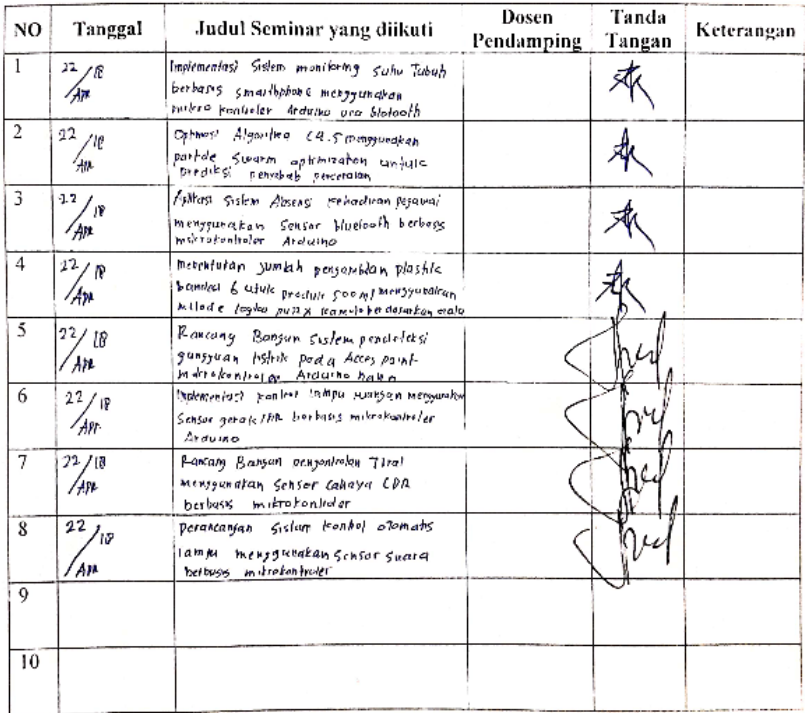 NO Tanggal Judul Seminar yang diikuti Dosen Pendamping Tanda Tangan Keterangan
1 22/Apr 18 Implementasi Sistem monitoring Suhu Tubuh
berbasis smarthphone menggunakan
mikro kontroler Arduino uno blotooth
2 22/Apr 18 Optimasi Algoritma C4.5 menggunakan
partcle Swarm optimization untuk
prediksi penyebab perceraian
3 22/Apr 18 Aplikasi Sistem Absensi kehadiran pegawai
menggunakan Sensor bluetooth berbasis
mikrokontroler Arduino
4 22/Apr 18 menentukan jumlah pengambilan plastik
6 untuk produk 500 ml menggunakan
metode logika berdasarkan
5 22/Apr 18 Rancang Bangun Sistem pendeteksi
gangguan listrik pada Acces point
mikrokontroler Arduino
6 22/Apr 18 Implementasi kontrol lampu ruangan menggunakan
Sensor gerak PIR berbasis mikrokontroler
Arduino
7 22/Apr 18 Rancang Bangun pengontrolan Tirai
menggunakan Sensor Cahaya LDR
berbasis mikrokontroler
8 22/Apr 18 perancangan Sistem kontrol otomatis
lampu menggunakan Sensor Suara
berbasis mikrokontroler
9
10